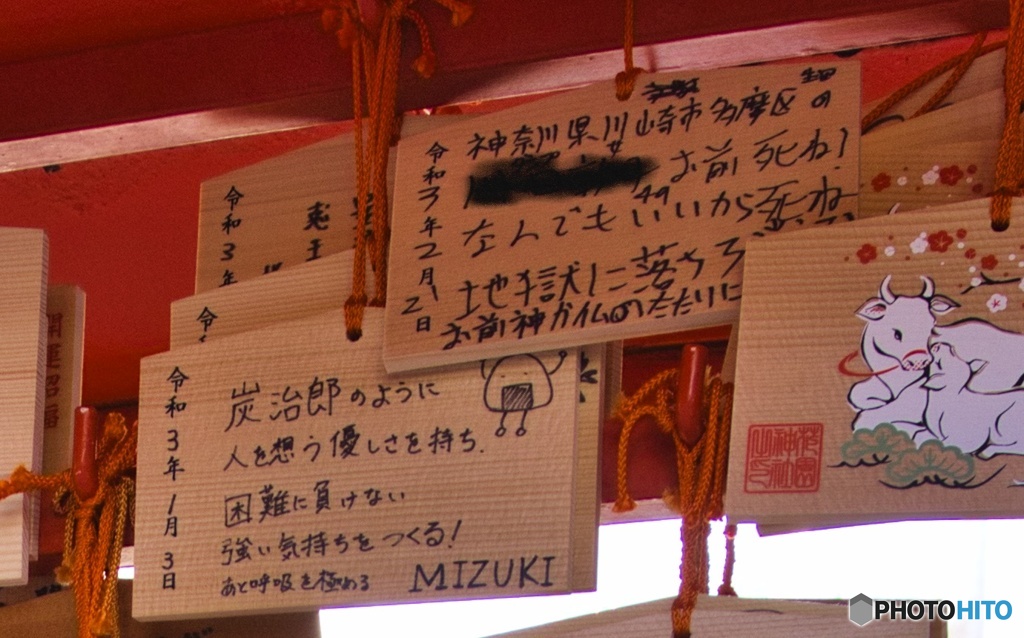 神奈川県川崎市多摩区 生田の
お前死ね!
なんでもいいから死ね
地獄に落ちろ
お前神が仏のたたりに
令和3年2月2日
令和3年
令
炭治郎のように
人を想う優しさを持ち.
困難に負けない
強い気持ちをつくる!
あと呼吸を極める
MIZUKI
令和3年1月3日
PHOTOHITO